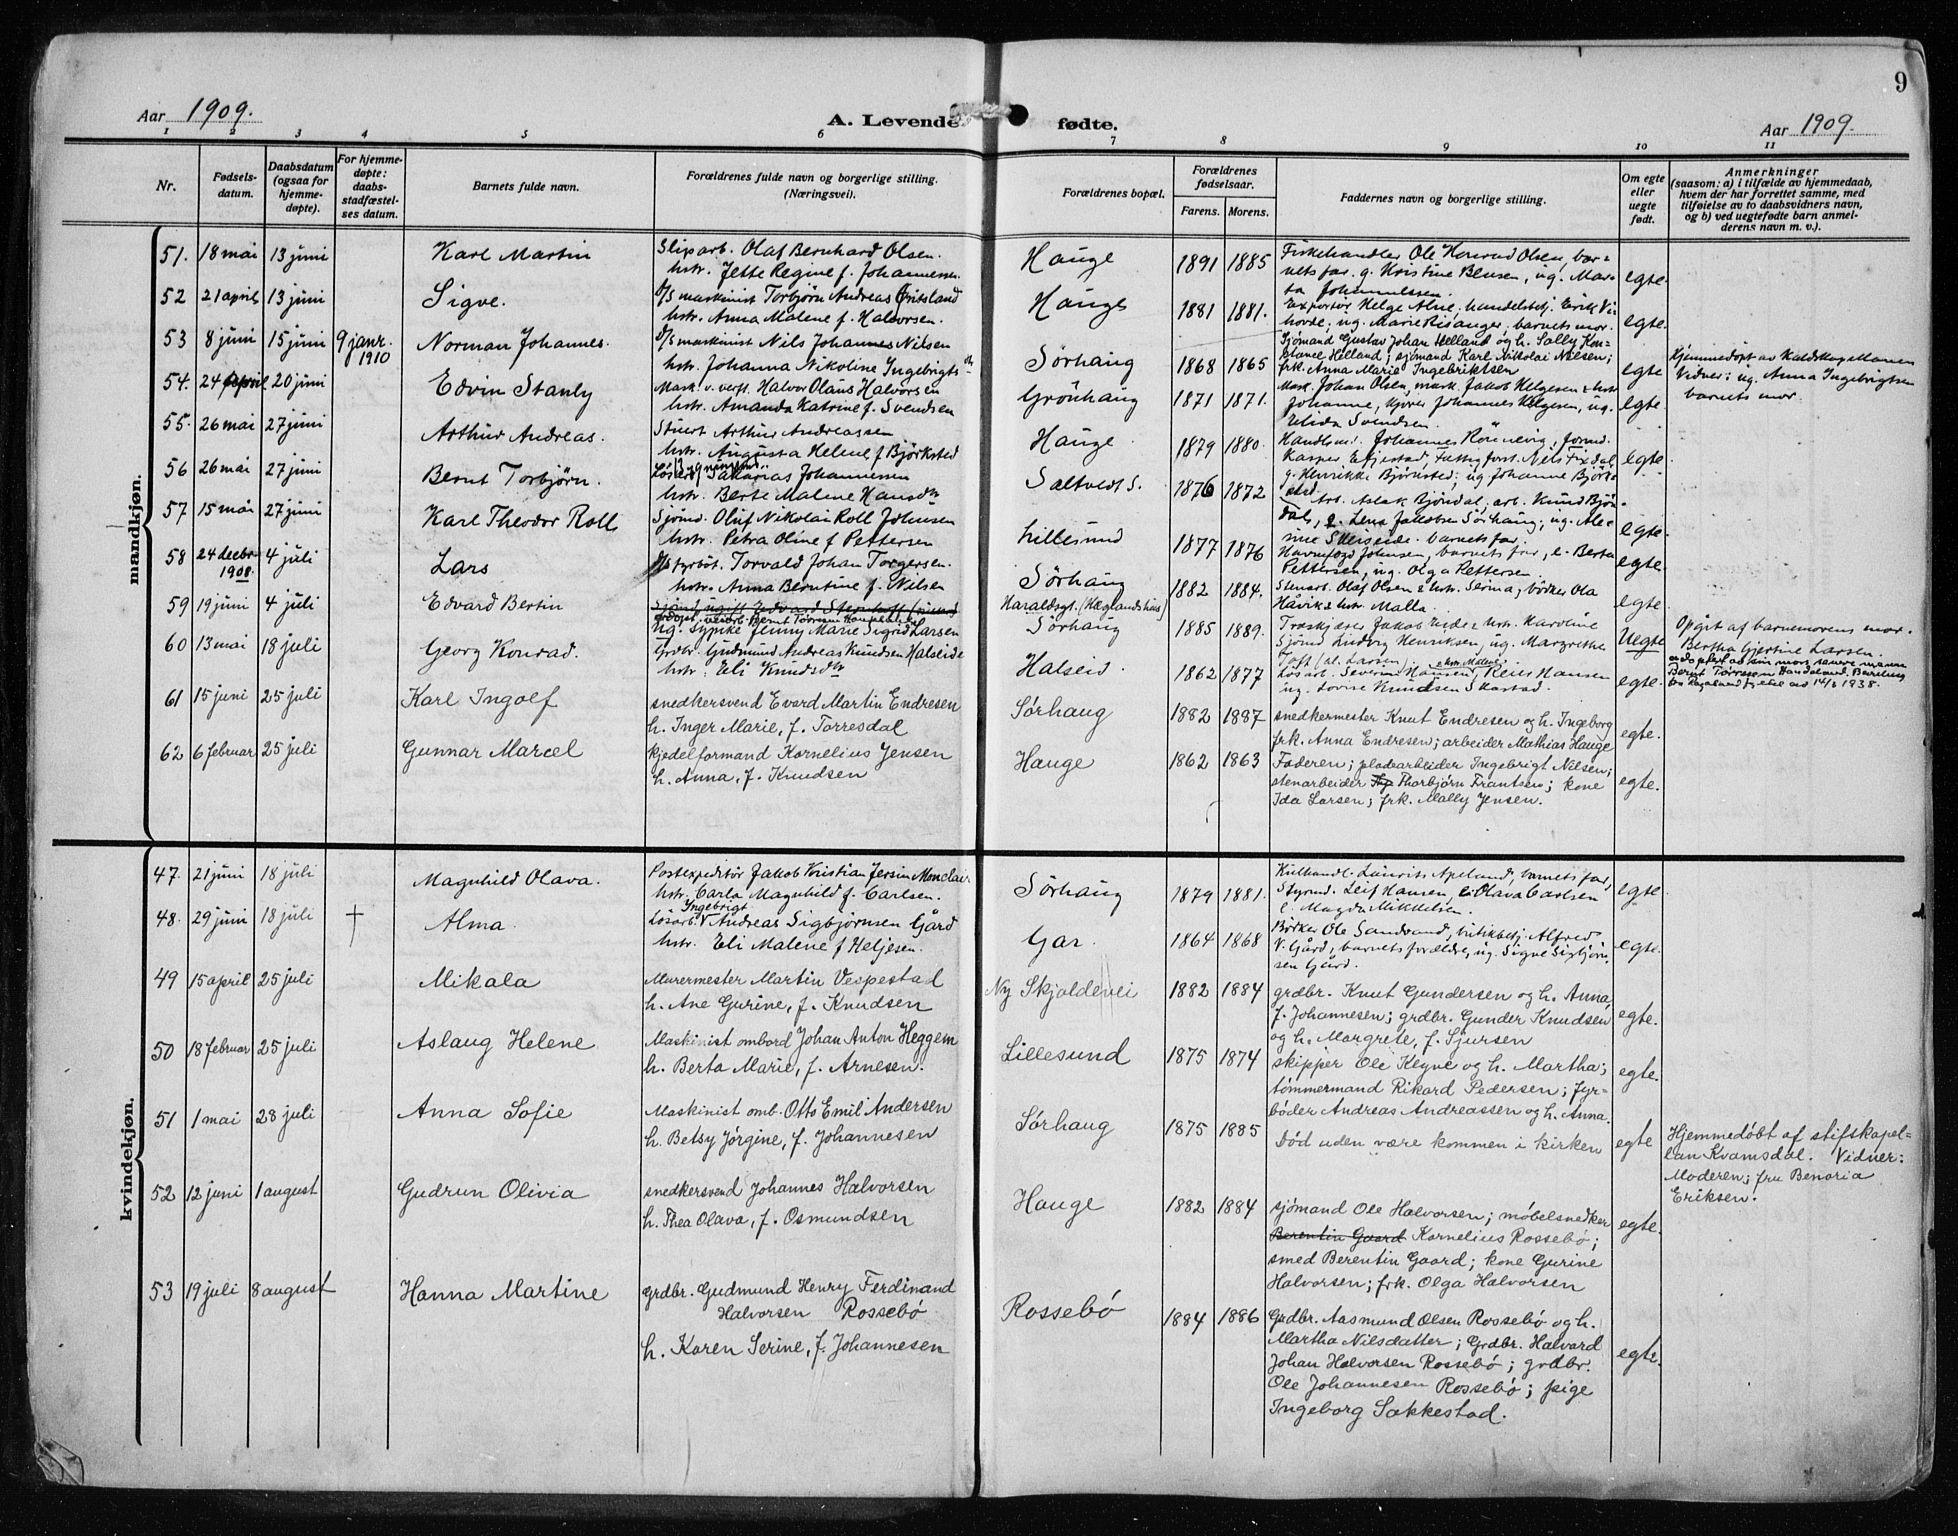 9
Aar 1909.
A. Levende fødte.
Aar 1909.
1 2 3 4 5 6 7 8 9 10 11
Nr.
Fødsels-
datum.
Daabsdatum
(ogsaa for
hjemme-
døpte).
For hjemme-
døpte:
daabs-
stadfæstel-
ses datum.
Barnets fulde navn.
Forældrenes fulde navn og borgerlige stilling.
(Næringsvei).
Forældrenes bopæl.
Forældrenes
fødselsaar.
Farens. Morens.
Faddernes navn og borgerlige stilling.
Om egte
eller
uegte
født.
Anmerkninger
(saasom: a) i tilfælde av hjemmedaab,
hvem der har forrettet samme, med
tilføielse av to daabsvidners navn,
og b) ved uegtefødte barn anmel-
derens navn m. v.).
mandkjøn.
51. 18 mai 13 juni Karl Martin
Sliparb. Olaf Bernhard Olsen.
hstr. Jette Regine f. Johannesen.
Hauge 1891 1885
Fiskehandler Ole Konrad Olsen, bar-
nets far. g. Kristine Bensen, ug. Mar-
ta Johannessen.
egte.
52 21 april 13 juni Sigve.
D/S maskinist Torbjørn Andreas Gritsland
hstr. Anna Malene f. Halvorsen.
Hauge 1881 1881.
Exportør Helge Alne, handelsbetj. Erik Vi-
hovde, ug. Marie Risanger, barnets mor.
egte.
53 8 juni 15 juni 9 janr. 1910 Norman Johannes.
D/S maskinist Nils Johannes Nilsen
hstr. Johanna Nikoline Ingebrigtsdtr
Sörhaug 1868 1865
Sjømand Gustav Johan Helland og h. Sally Kon-
stance Helland; sjømand Karl Nikolai Nilsen;
frk. Anna Marie Ingebriktsen
egte
Hjemmedøpt av
Vidner: ug. Anna Ingebrigtsen
barnets mor.
54. 24 april 20 juni Edvin Stanly
Mask. v. verft. Halvor Olaus Halvorsen
hstr. Amanda Katrine f. Svendsen
Grönhaug 1871 1871.
Mask. Johan Olsen, mask. Jakob Helgesen & hstr
Johanne, kjører Johannes Helgesen, ug.
Elida Svendsen.
egte.
55. 26 mai 27 juni Arthur Andreas.
Stuert Arthur Andreassen
hstr. Augusta Helene f Björksted
Hauge 1879 1880.
Handlsmd. Johannes Rönnevig, formd.
Kasper Effjestad, Fattigforst. Nils Fixdal
g. Henrikke Björksted; ug Johanne Björk-
sted.
egte.
56 26 mai 27 juni Bernt Torbjørn.
Løsarb. Sakarias Johannesen
hstr. Berte Malene Hansdtr
Saltvedt S. 1876 1872
Arb. Aslak Bjöndal, arb. Knud Bjön-
dal, e. Lena Jakobsen Sørhaug; ug. Ale-
sine Skeiseide. barnets far.
egte.
57 15 mai 27 juni Karl Theodor Roll
Sjömd. Oluf Nikolai Roll Johnsen
hstr. Petra Oline f Pettersen
Lillesund 1877 1876
Havnefogd Johnsen, barnets far, e. Berta
Pettersen, ug. Olga Pettersen.
egte.
58 24 decbr. 1908. 4 juli Lars
D/Styrbøt. Torvald Johan Torgersen.
hstr. Anna Berntine f. Nilsen
Sørhaug 1882 1884.
Stenarb. Olaf Olsen & hstr. Serina, bødker Ola
Håvik & hstr. Malla.
egte.
59 19 juni 4 juli Edvard Bertin
Ug. sypike Jenny Marie Sigrid Larsen
Haraldsgt. (Hæglandshus)
Sørhaug 1885 1889.
Traskjærer Jakob Eide & hstr. Karoline
Sjømd Ludvig Henriksen, ug. Margrethe
Toft (al. Larsen)
Uegte
Opgit af barnemorens mor.
Bertha Gjertine Larsen.
adoptert av sin mors senere mann
Bernt Tørresen Haudeland. Bevilling
fra Rogaland fylke av 14/2 1938.
60 13 mai 18 juli Georg Konrad.
Grdbr. Gudmund Andreas Knudsen Halseide
hstr. Eli Knudsdtr
Halseid 1862 1877
Løsarb. Severin Hansen & hstr. Malene, Reier Hansen
ug. Lovise Knudsen Skarstad.
egte.
61 15 juni 25 juli Karl Ingolf
snedkersvend Evard Martin Endresen
h. Inger Marie, f. Torresdal
Sørhaug 1882 1887
snedkermester Knut Endresen og h. Ingeborg
frk. Anna Endresen; arbeider Mathias Hauge
egte.
62 6 februar 25 juli Gunnar Marcel
kjedelformand Kornelius Jensen
h. Anna, f. Knudsen
Hauge 1862 1863
Faderen; pladearbeider Ingebrigt Nilsen;
stenarbeider Thorbjørn Frantsen; kone
Ida Larsen; frk. Mally Jensen.
egte.
kvindekjøn.
47. 21 juni 18 juli Magnhild Olava.
Postexpeditör Jakob Kristian Jersin Monclair
hstr. Carla Magnhild f. Carlsen.
Sørhaug 1879 1881.
Kulhandl. Laurits Apeland, barnets far,
Styrmd. Leif Hansen, e. Olava Carlsen
e. Magda Mikkelsen.
egte.
48. 29 juni 18 juli † Alma.
Løsarb. Ingebrigt Andreas Sigbjørnsen Gård
hstr. Eli Malene f Heljesen.
Gar. 1864 1868
Bødker Ole Sandsand, butikbetj. Alfred
V. Gård, barnets forældre, ug. Signe Sigbjørn-
sen Gård.
egte.
49 15 april 25 juli Mikala
Murermester Martin Vespestad
h. Ane Gurine, f. Knudsen
Ny Skjoldevei 1882 1884
grdbr. Knut Gundersen og h. Anna,
f. Johannesen; grdbr. Gunder Knudsen
og h. Margrete, f. Sjursen
egte.
50 18 februar 25 juli Aslaug Helene
Maskinist ombord Johan Anton Heggem
h. Berta Marie, f. Arnesen.
Lillesund 1875 1874
skipper Ole Ceyne og h. Martha;
tømmermand Rikard Pedersen; fyr-
bøder Andreas Andreassen og h. Anna.
egte.
51 1 mai 28 juli Anna Sofie
Maskinist omb. Otto Emil Andersen
h. Betsy Jørgine, f. Johannesen
Sørhaug 1875 1885
Død uden være kommen i kirken
egte
Hjemmedøbt af stifskapel-
lan Kvamsdal. Vidner:
Moderen; fru Benoria
Eriksen.
52 12 juni 1 august Gudrun Olivia
snedkersvend Johannes Halvorsen
h. Thea Olava, f. Osmundsen
Hauge 1882 1884
sjømand Ole Halvorsen; møbelsnedker
Berentin Gaard Kornelius Rossebø;
smed Berentin Gaard; kone Gurine
Halvorsen; frk. Olga Halvorsen
egte.
53 19 juli 8 august Hanna Martine
Grdbr. Gudmund Henry Ferdinand
Halvorsen Rossebø
h. Karen Serine, f. Johannesen
Rossebø 1884 1886
Grdbr. Aasmund Olsen Rossebø og h.
Martha Nilsdatter; Grdbr. Halvard
Johan Halvorsen Rossebø; grdbr.
Ole Johannesen Rossebø; pige
Ingeborg Sakkestad.
egte.